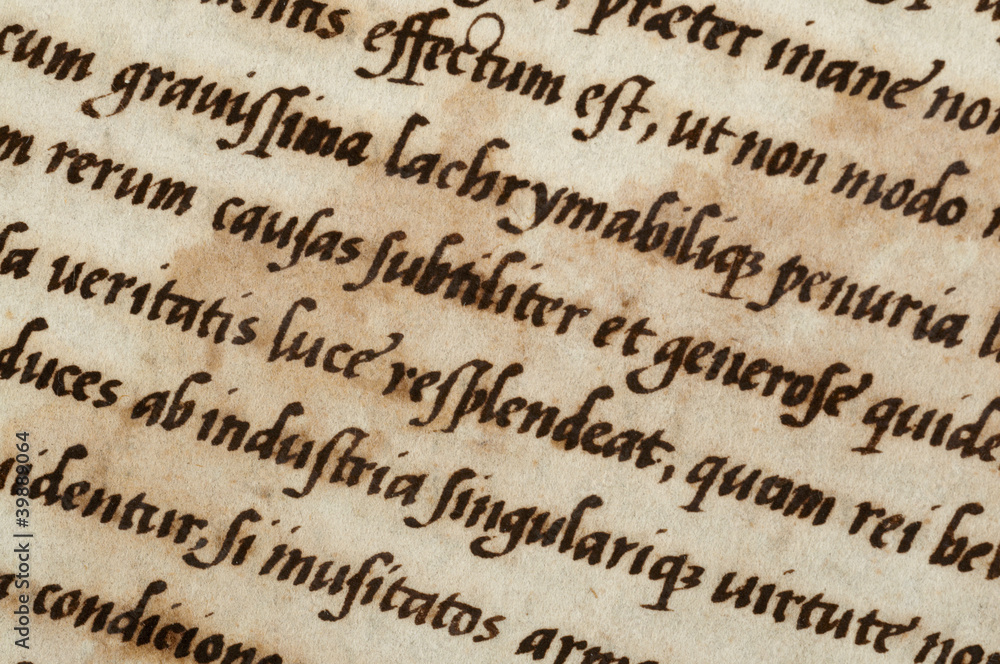 præter inane non
entis effectum eſt, ut non modo
cum grauiſſima lachrymabiliqꝫ penuria
m rerum cauſas ſubtiliter et generoſe quide
la ueritatis luce reſplendeat, quam rei bel
duces ab induſtria ſingulariqꝫ uirtute no
uidentur, ſi inuſitatos arm
condicione
Adobe Stock | #39888064